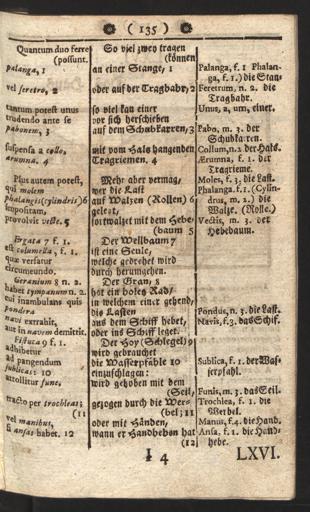 ( 135 )
Quantum duo ferre
(possunt.
palanga, 1
vel feretro, 2
tantum potest unus
trudendo ante se
pabonem, 3
suspensa a collo,
ærumna. 4
Plus autem potest,
qui molem
phalangis (cylindris) 6
impositam,
provolvit vecte. 5
Ergata 7 f. 1.
est columella, f. 1.
quæ versatur
circumeundo.
Geranium 8 n. 2.
habet tympanum n. 2.
cui inambulans quis
pondera
navi extrahit,
aut in navem demittit.
Fistuca 9 f. 1.
adhibetur
ad pangendum
sublicas: 10
attollitur fune,
tracto per trochleas;
(11
vel manibus,
si ansas habet. 12
So viel zwey tragen
(können
an einer Stange, 1
oder auf der Tragbahr, 2
so viel kan einer
vor sich herschieben
auf dem Schubkarren, 3
mit vom Hals hangenden
Tragriemen. 4
Mehr aber vermag,
wer die Last
auf Walzen (Rollen) 6
gelegt,
fortwalzet mit dem Hebe-
(baum 5
Der Wellbaum 7
ist eine Seule,
welche gedrehet wird
durch herumgehen.
Der Kran, 8
hat ein holes Rad/
in welchem einer gehend,
die Lasten
aus dem Schiff hebet,
oder ins Schiff leget.
Der Hoy (Schlegel) 9
wird gebrauchet
die Wasserpfähle 10
einzuschlagen:
wird gehoben mit dem
(Seil,
gezogen durch die Wer-
(bel; 11
oder mit Händen,
wann er Handheben hat
(12)
Palanga, f. 1 Phalan-
ga, f. 1.) die Stan-
Feretrum, n. 2. die
Tragbahr.
Unus, a, um, einer.
Pabo, m. 3. der
Schubkarrer.
Collum, n. 2. der Hals.
Ærumna, f. 1. der
Tragrieme.
Moles, f. 3. die Last.
Phalanga. f. 1. (Cylin-
drus, m. 2.) die
Walze. (Rolle.)
Vectis, m. 3. der
Hebebaum.
Pondus, n. 3. die Last.
Navis, f. 3. das Schif.
Sublica, f. 1. der Was-
serpfahl.
Funis, m. 3. das Seil.
Trochlea, f. 1. die
Werbel.
Manus, f. 4. die Hand.
Ansa, f. 1. die Hand-
hebe.
I 4
LXVI.